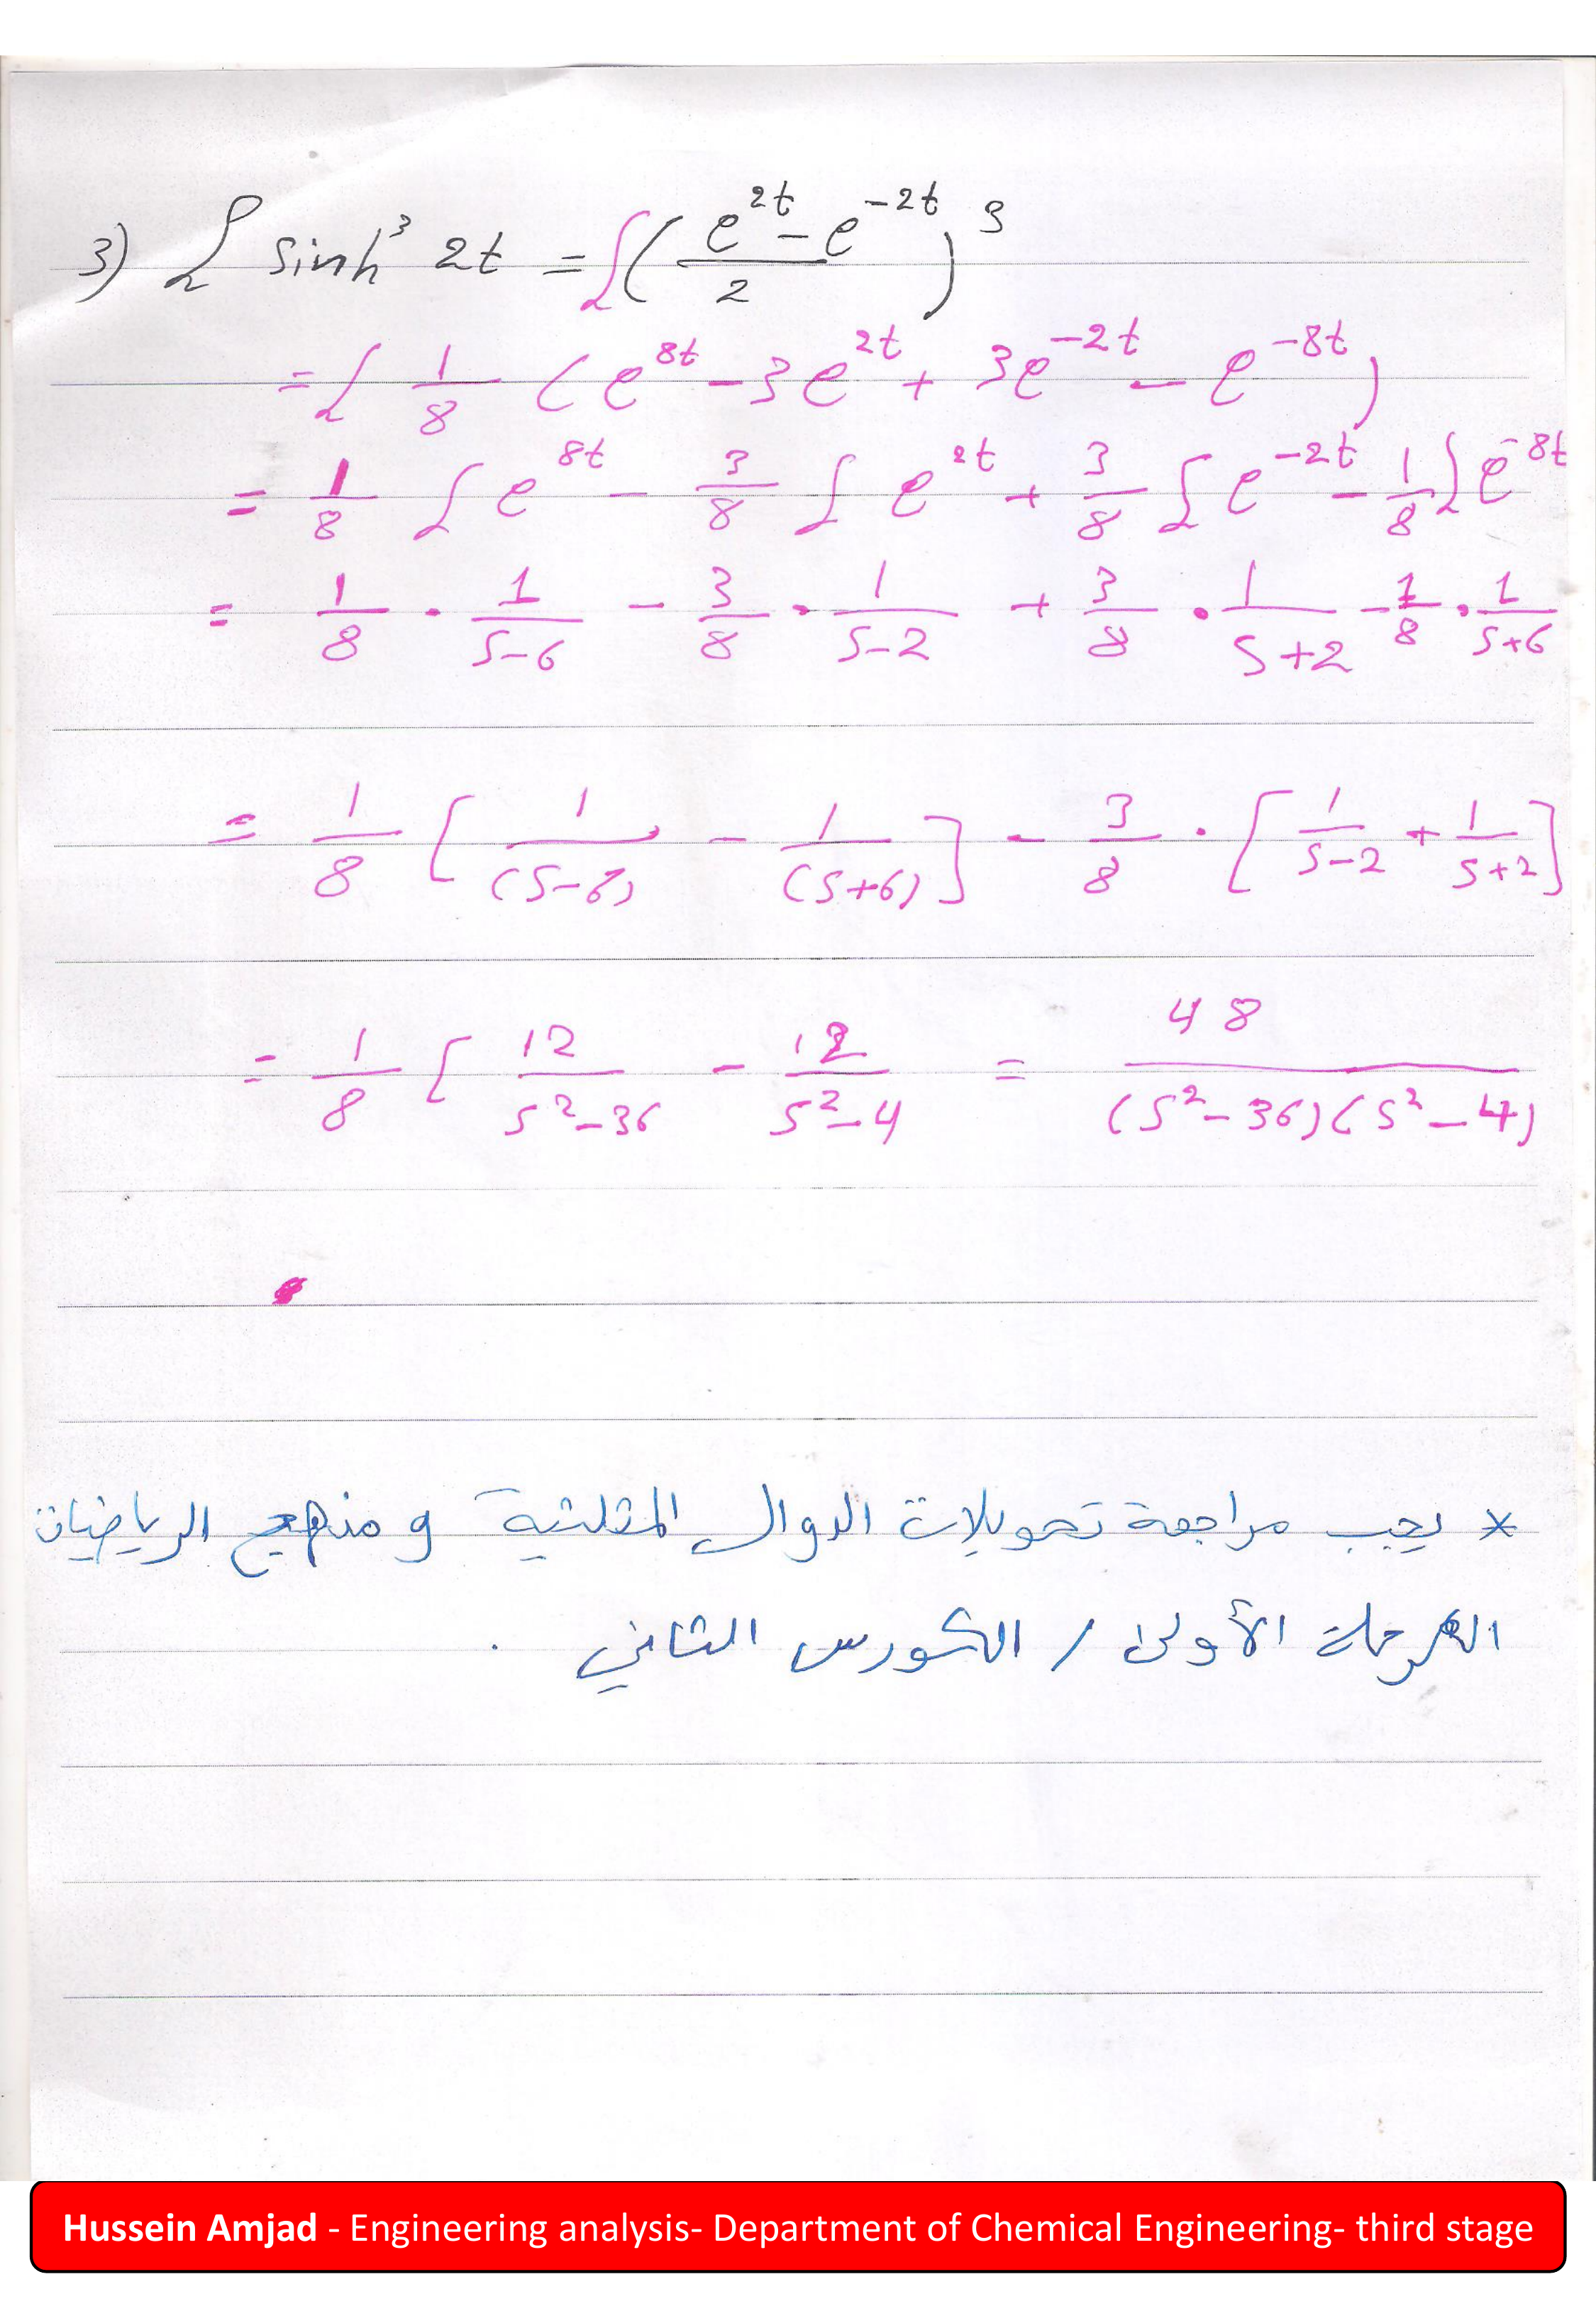 3) ℒ sinh³ 2t = ℒ( (e^{2t} - e^{-2t}) / 2 )³
= ℒ 1/8 ( e^{8t} - 3e^{2t} + 3e^{-2t} - e^{-8t} )
= 1/8 ℒ e^{8t} - 3/8 ℒ e^{2t} + 3/8 ℒ e^{-2t} - 1/8 ℒ e^{-8t}
= 1/8 · 1/(S-6) - 3/8 · 1/(S-2) + 3/8 · 1/(S+2) - 1/8 · 1/(S+6)
= 1/8 [ 1/(S-6) - 1/(S+6) ] - 3/8 · [ 1/(S-2) + 1/(S+2) ]
= 1/8 [ 12/(S²-36) - 12/(S²-4) = 48/((S²-36)(S²-4))
* يجب مراجعة تحويلات الدوال المثلثية و منهج الرياضيات
المرحلة الأولى / الكورس الثاني .
Hussein Amjad - Engineering analysis- Department of Chemical Engineering- third stage